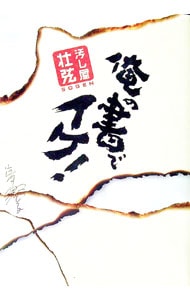 俺の書で
イケ!
汚し屋
壮弦
SOGEN